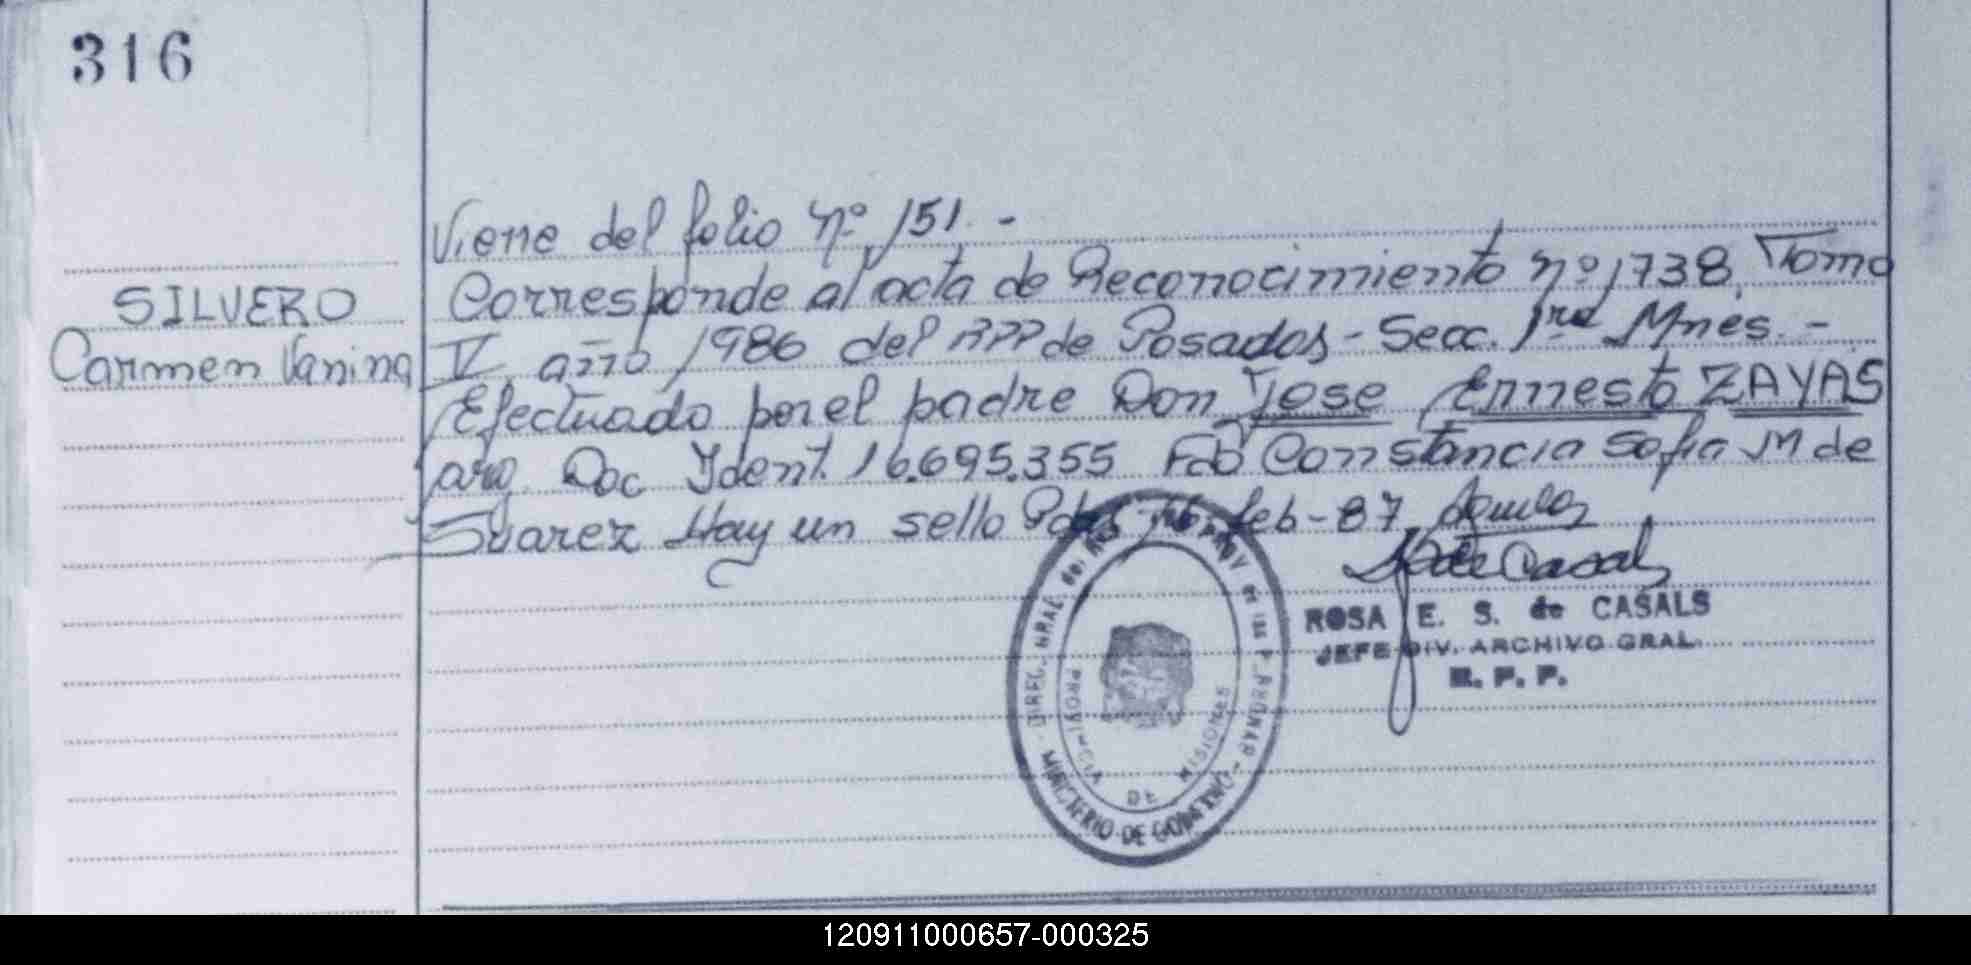 316
Viene del folio nº 151.-
SILVERO
Carmen Vanina
Corresponde al acta de Reconocimiento nº 1738, Tomo
V, año 1986 del RPP de Posadas - Secc. 1ra Mnes.-
Efectuado por el padre Don Jose Ernesto ZAYAS
arg. Doc Ident. 16.695.355 Fdo Constancia Sofia M de
Suarez Hay un sello Pdas feb-87.
ROSA E. S. de CASALS
JEFE DIV. ARCHIVO GRAL.
R. P. P.
PROVINCIA DE MISIONES
MINISTERIO DE GOBIERNO
120911000657-000325